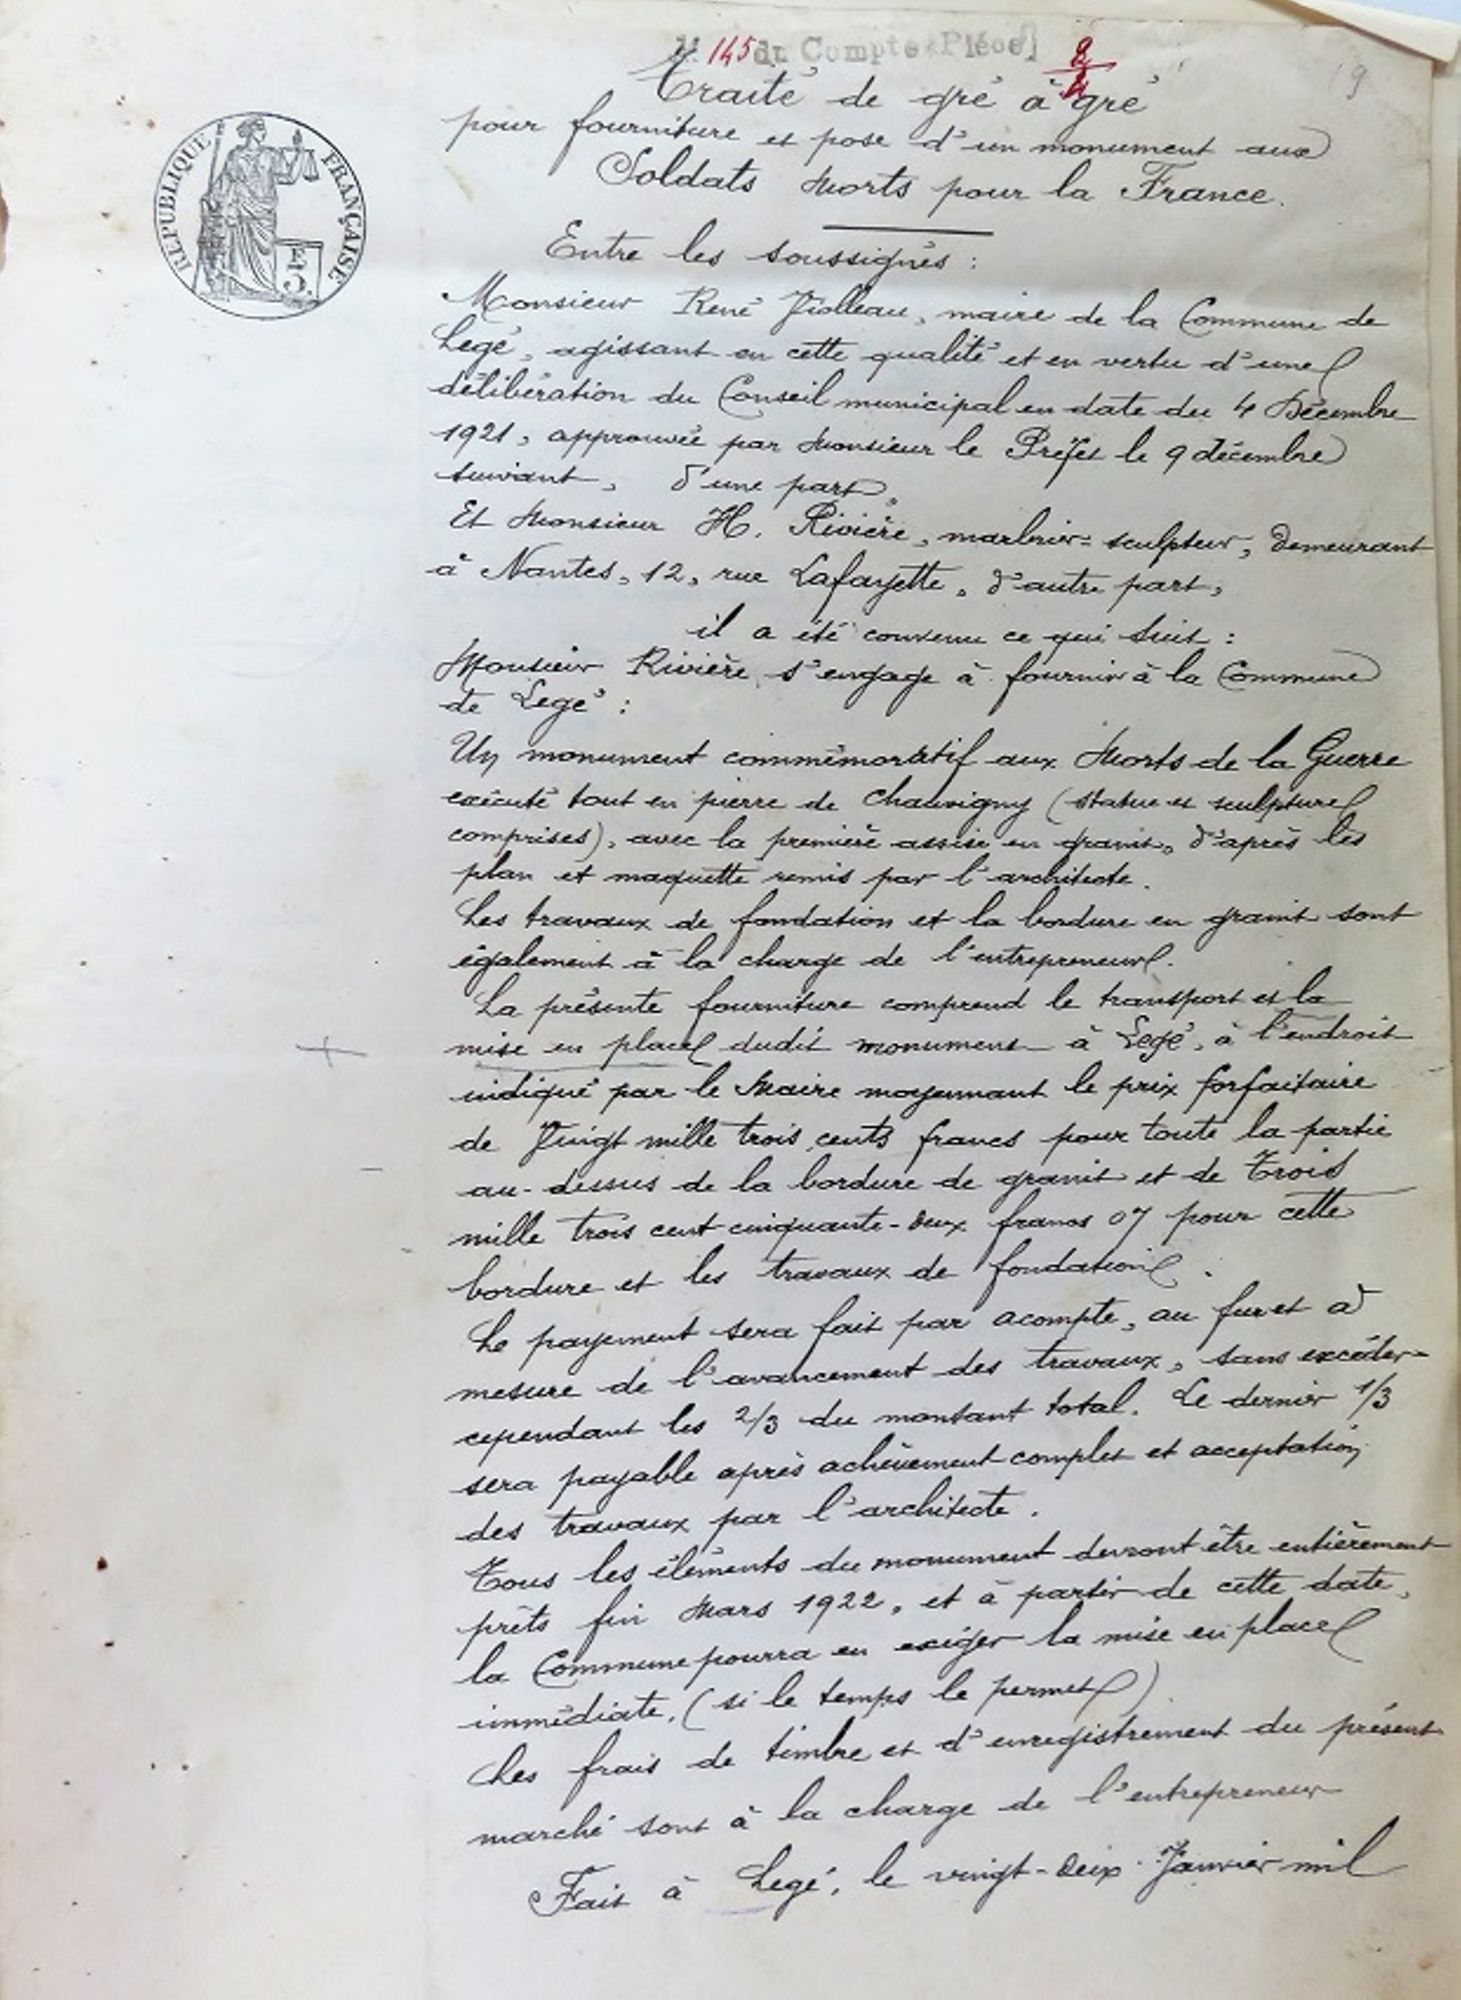 N° 145 du Compte Pièce 2/4
9
Traité de gré à gré
pour fourniture et pose d'un monument aux
Soldats Morts pour la France.
RÉPUBLIQUE FRANÇAISE
Entre les soussignés :
Monsieur René Violleau, maire de la Commune de
Legé, agissant en cette qualité et en vertu d'une
délibération du Conseil municipal en date du 4 Décembre
1921, approuvée par Monsieur le Préfet le 9 décembre
suivant, d'une part,
Et Monsieur H. Rivière, marbrier-sculpteur, demeurant
à Nantes, 12, rue Lafayette, d'autre part,
il a été convenu ce qui suit :
Monsieur Rivière s'engage à fournir à la Commune
de Legé :
Un monument commémoratif aux Morts de la Guerre
exécuté tout en pierre de Chauvigny (statue et sculpture
comprises), avec la première assise en granit, d'après les
plan et maquette remis par l'architecte.
Les travaux de fondation et la bordure en granit sont
également à la charge de l'entrepreneur.
La présente fourniture comprend le transport et la
mise en place dudit monument à Legé, à l'endroit
indiqué par le Maire moyennant le prix forfaitaire
de Vingt mille trois cents francs pour toute la partie
au-dessus de la bordure de granit et de Trois
mille trois cent cinquante-deux francs 07 pour cette
bordure et les travaux de fondation.
Le payement sera fait par acompte, au fur et à
mesure de l'avancement des travaux, sans excéder
cependant les 2/3 du montant total. Le dernier 1/3
sera payable après achèvement complet et acceptation
des travaux par l'architecte.
Tous les éléments du monument devront être entièrement
prêts fin Mars 1922, et à partir de cette date,
la Commune pourra en exiger la mise en place
immédiate, (si le temps le permet)
Les frais de timbre et d'enregistrement du présent
marché sont à la charge de l'entrepreneur
Fait à Legé, le vingt-deux Janvier mil